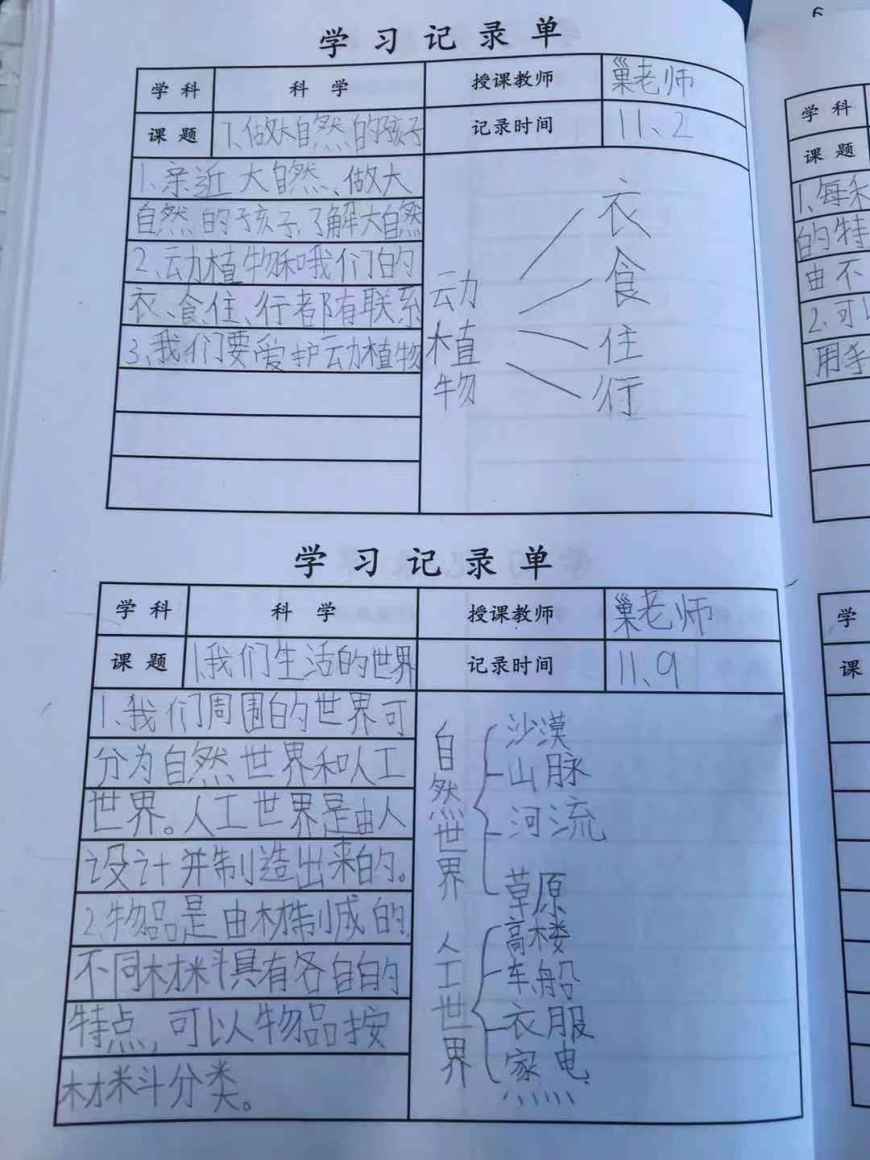 学习记录单
学科 科学 授课教师 巢老师
课题 7、做大自然的孩子 记录时间 11、2
1、亲近大自然、做大
自然的孩子、了解大自然
2、动植物和我们的
衣、食住、行都有联系
3、我们要爱护动植物
动植物
衣
食
住
行
学习记录单
学科 科学 授课教师 巢老师
课题 1、我们生活的世界 记录时间 11、9
1、我们周围的世界可
分为自然世界和人工
世界。人工世界是由人
设计并制造出来的。
2、物品是由材制成的
不同材料具有各自的
特点，可以物品按
材料分类。
自然世界
沙漠
山脉
河流
草原
人工世界
高楼
车船
衣服
家电
学科
课题
1、每
的特
由不
2、可
用手
学
课